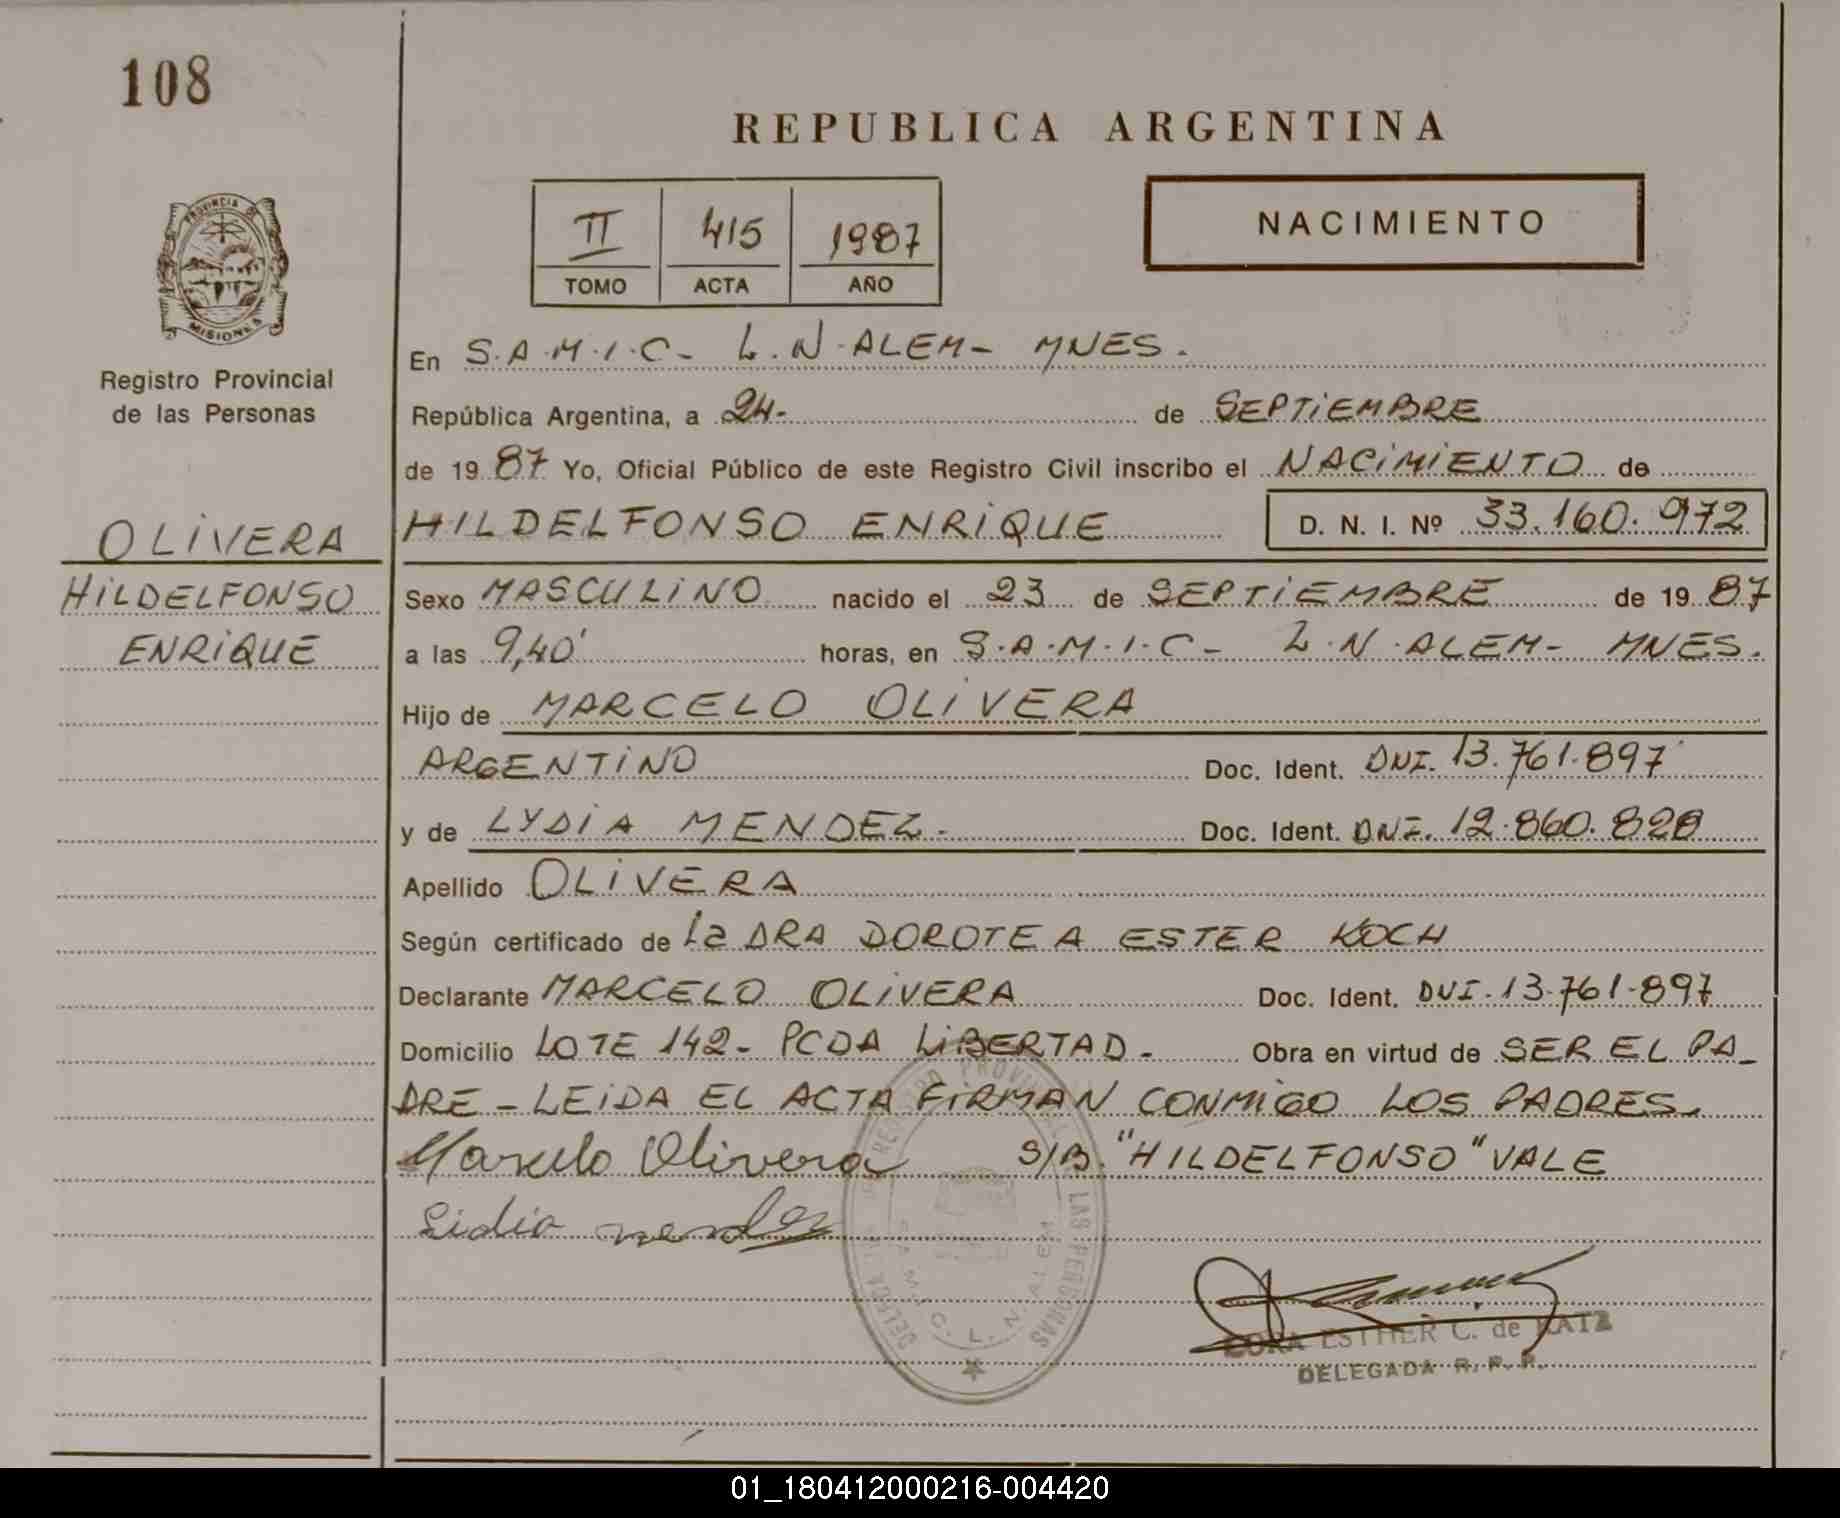 108
REPUBLICA ARGENTINA
PROVINCIA DE
MISIONES
Registro Provincial
de las Personas
II 415 1987
TOMO ACTA AÑO
NACIMIENTO
En S.A.M.I.C- L.N.ALEM- MNES.
República Argentina, a 24- de SEPTiEMBRE
de 1987 Yo, Oficial Público de este Registro Civil inscribo el NACiMiENTO de
OLiVERA
HiLDELFONSO
ENRiQUE
HILDELFONSO ENRiQUE D. N. I. Nº 33.160.972
Sexo MASCULiNO nacido el 23 de SEPTiEMBRE de 1987
a las 9,40' horas, en S.A.M.I.C- L.N.ALEM- MNES.
Hijo de MARCELO OLiVERA
ARGENTiNO Doc. Ident. DNI. 13.761.897
y de LYDiA MENDEZ. Doc. Ident. DNI. 12.860.828
Apellido OLiVERA
Según certificado de La DRA DOROTEA ESTER KOCH
Declarante MARCELO OLiVERA Doc. Ident. DNI. 13.761.897
Domicilio LOTE 142- PCDA LiBERTAD- Obra en virtud de SER EL PA-
DRE - LEiDA EL ACTA FiRMAN CONMiGO LOS PADRES.
Marcelo Olivera S/B. "HILDELFONSO" VALE
Lidia mendez
REGISTRO PROVINCIAL DE LAS PERSONAS
S.A.M.I.C. L. N. ALEM
CORA ESTHER C. de KATZ
DELEGADA R. P. P.
01_180412000216-004420